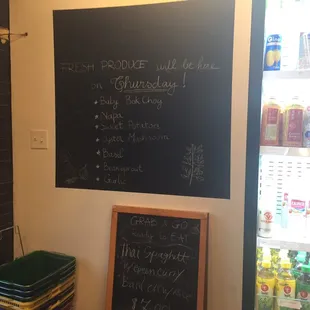 FRESH PRODUCE will be here
on Thursday!
Baby Bok Choy
Napa
Sweet Potatoe
Oyster Mushroom
Basil
Beansprout
Garlic
GRAB
Ready to EAT
Thai Spaghetti
W/ Green curry